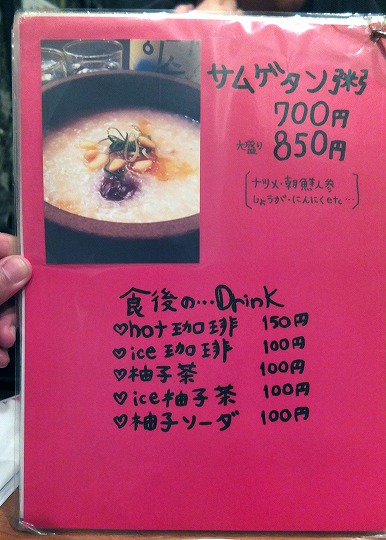 サムゲタン粥
700円
大盛り 850円
[ナツメ・朝鮮人参
しょうが・にんにくetc…]
食後の…Drink
♡hot珈琲 150円
♡ice珈琲 100円
♡柚子茶 100円
♡ice柚子茶 100円
♡柚子ソーダ 100円